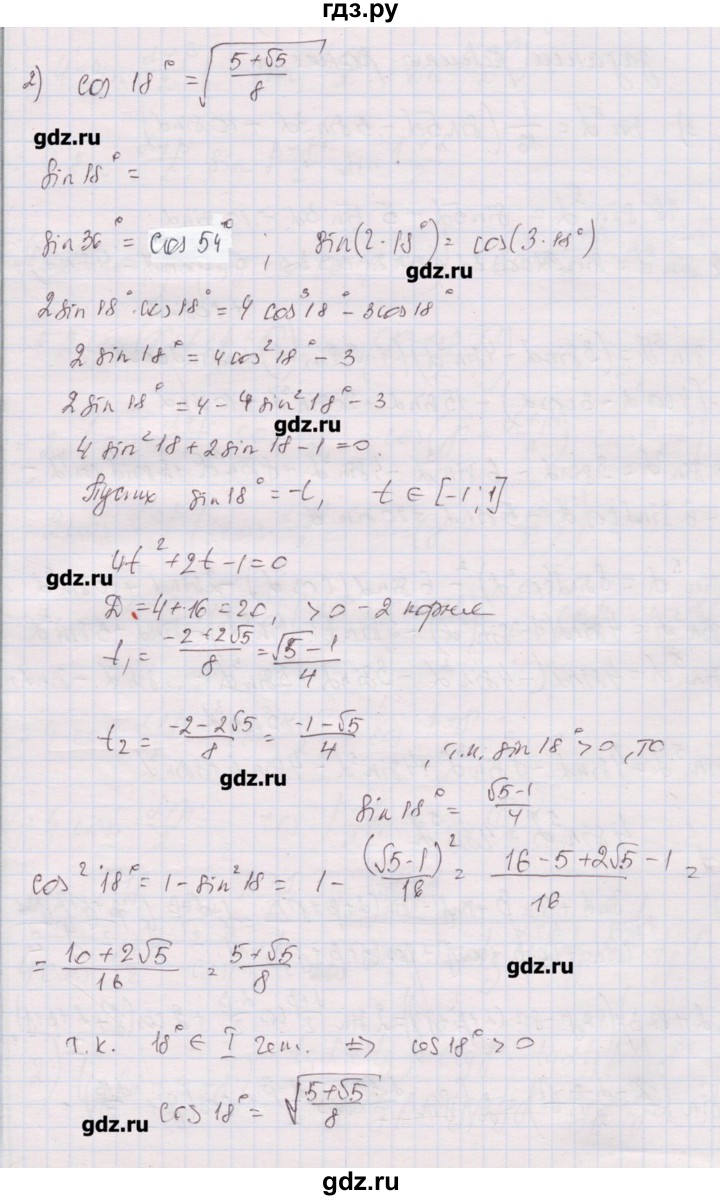 гдз.ру
2) cos 18° = √((5+√5)/8)
gdz.ru
sin 18° =
sin 36° = cos 54° ; sin(2·18°) = cos(3·18°)
gdz.ru
2 sin 18° · cos 18° = 4 cos³ 18° - 3 cos 18°
2 sin 18° = 4 cos² 18° - 3
2 sin 18° = 4 - 4 sin² 18° - 3
gdz.ru
4 sin² 18 + 2 sin 18 - 1 = 0.
Пусть sin 18° = t, t ∈ [-1; 1]
4t² + 2t - 1 = 0
gdz.ru
D = 4 + 16 = 20, > 0 - 2 корня
t₁ = (-2+2√5)/8 = (√5-1)/4
t₂ = (-2-2√5)/8 = (-1-√5)/4 , т.к. sin 18° > 0, то
gdz.ru
sin 18° = (√5-1)/4
cos² 18° = 1 - sin² 18 = 1 - (√5-1)²/16 = (16-5+2√5-1)/16 =
= (10+2√5)/16 = (5+√5)/8
gdz.ru
т.к. 18° ∈ I чет. ⇒ cos 18° > 0
cos 18° = √((5+√5)/8)
gdz.ru
gdz.ru